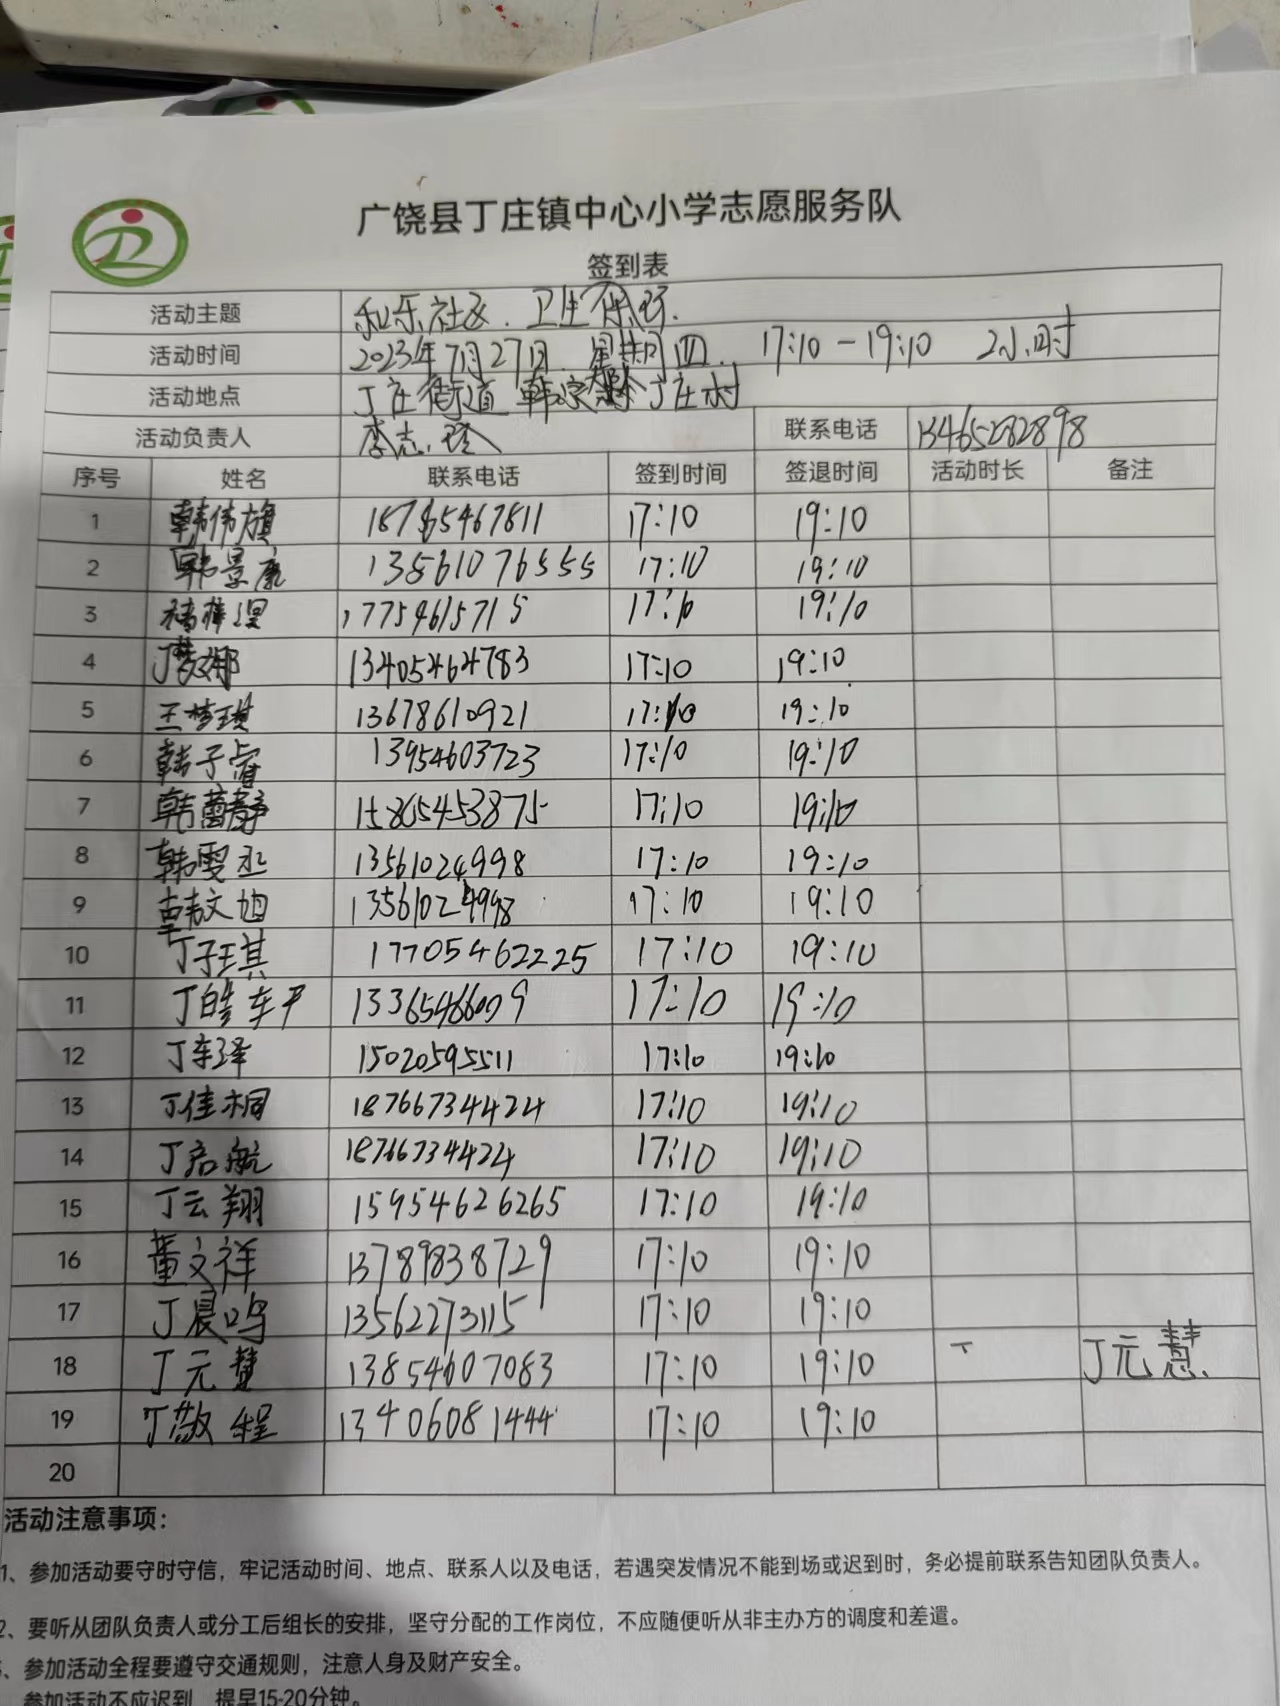 广饶县丁庄镇中心小学志愿服务队
签到表
活动主题 和乐社区.卫生保环.
活动时间 2023年7月27日 星期四. 17:10-19:10 2小时
活动地点 丁庄街道 丁庄村
活动负责人 李志玲 联系电话 13465282898
序号 姓名 联系电话 签到时间 签退时间 活动时长 备注
1 韩伟旗 18765467811 17:10 19:10
2 韩景康 13561076555 17:10 19:10
3 17754615715 17:10 19:10
4 丁梦娜 13405464783 17:10 19:10
5 王梦琪 13678610921 17:10 19:10
6 韩子睿 13954603723 17:10 19:10
7 韩蕾静 15865453875 17:10 19:10
8 韩雯丞 13561024998 17:10 19:10
9 韩文旭 13561024998 17:10 19:10
10 丁子琪 17705462225 17:10 19:10
11 丁皓轩 17:10 19:10
12 丁泽 15020595511 17:10 19:10
13 丁佳桐 18766734424 17:10 19:10
14 丁启航 18766734424 17:10 19:10
15 丁云翔 15954626265 17:10 19:10
16 董文祥 13789838729 17:10 19:10
17 丁晨鸣 13562273115 17:10 19:10
18 丁元慧 13854607083 17:10 19:10 丁元慧.
19 丁敬程 13406081444 17:10 19:10
20
活动注意事项：
1、参加活动要守时守信，牢记活动时间、地点、联系人以及电话，若遇突发情况不能到场或迟到时，务必提前联系告知团队负责人。
2、要听从团队负责人或分工后组长的安排，坚守分配的工作岗位，不应随便听从非主办方的调度和差遣。
、参加活动全程要遵守交通规则，注意人身及财产安全。
参加活动不应迟到，提早15-20分钟。